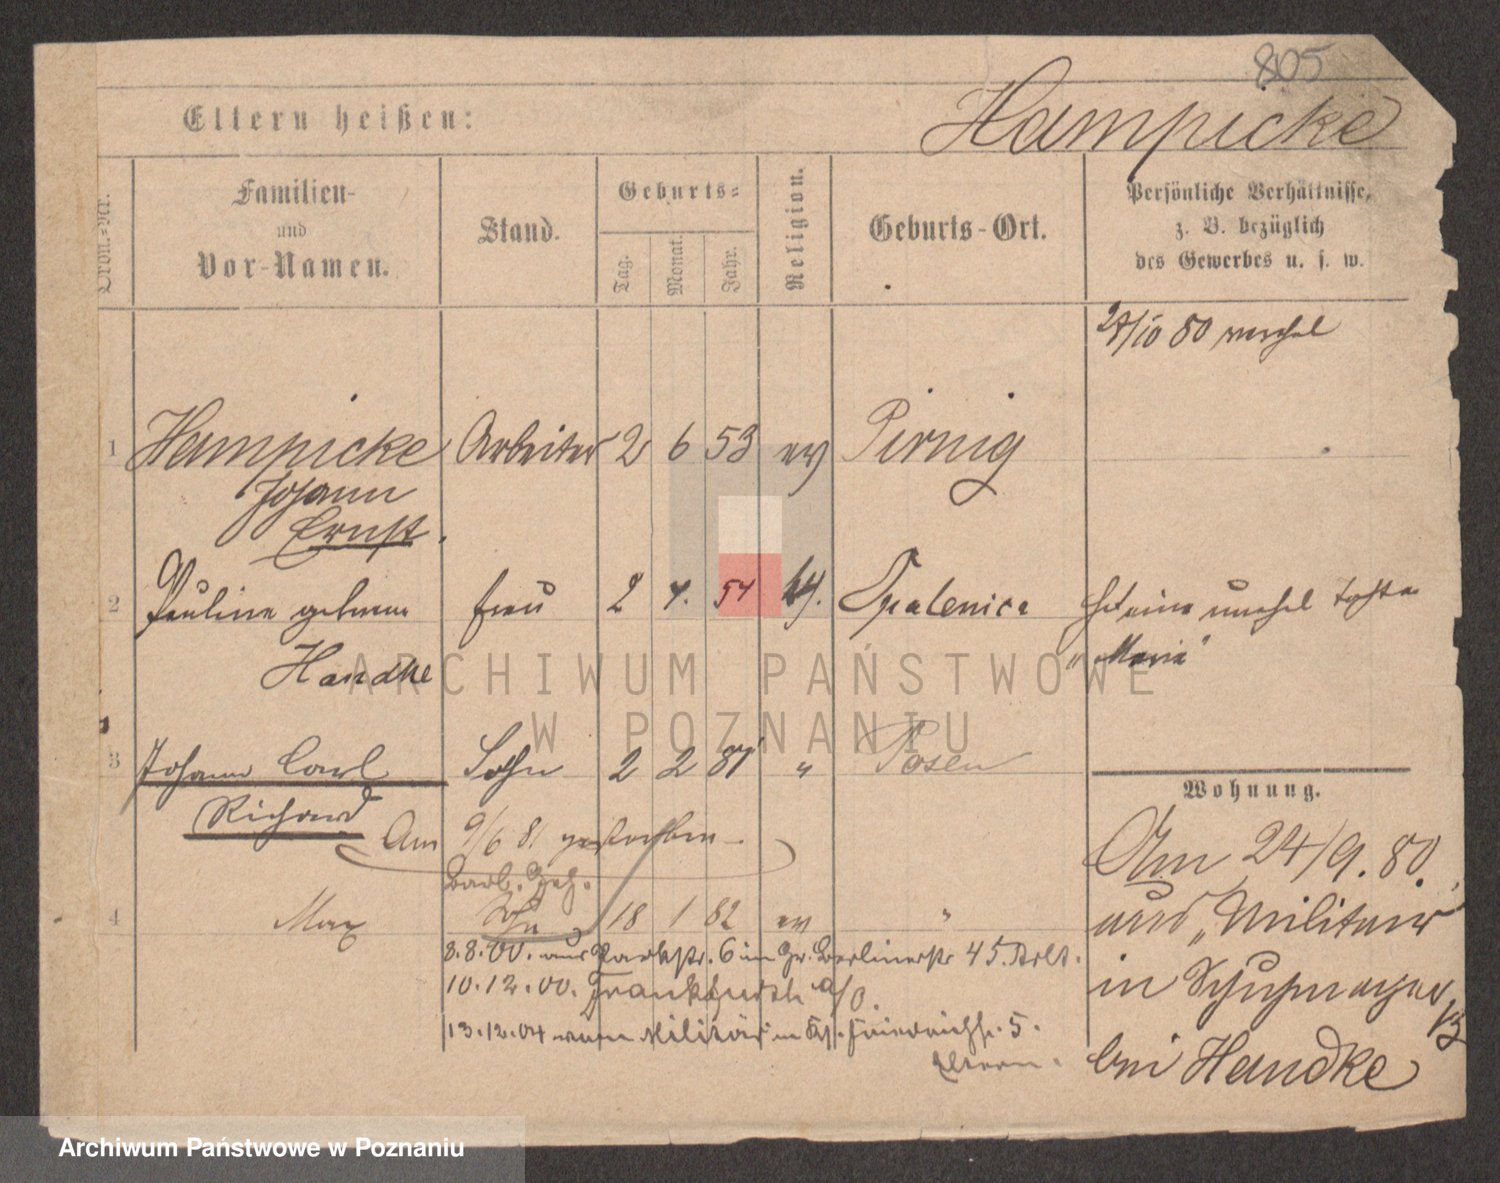 805
Eltern heißen:
Hampicke
Ordn.-Nr.
Familien-
und
Vor-Namen.
Stand.
Geburts-
Tag.
Monat.
Jahr.
Religion.
Geburts-Ort.
Persönliche Verhältnisse,
z. B. bezüglich
des Gewerbes u. s. w.
/10 80
1 Hampicke Arbeiter 2 6 53 ev Pirnig
Johann
Ernst.
2 Pauline geborne Frau 2 4. 54 Opalenica Hat eine unehel Tochter
Handke "Maria"
ARCHIWUM PAŃSTWOWE
W POZNANIU
3 Johann Carl Sohn 2 2 81 " Posen
Richard
Am 9/6 81 gestorben
Wohnung.
Am 24/9. 80.
vom "Militair"
in
bei Handke
4 Max Sohn 18 1 82 ev "
8.8.00. aus Parkstr. 6 in Gr. Berlinerstr 45.
10.12.00. Frankfurth a/O.
13.12.04 vom Militär in 5.
Eltern.
Archiwum Państwowe w Poznaniu